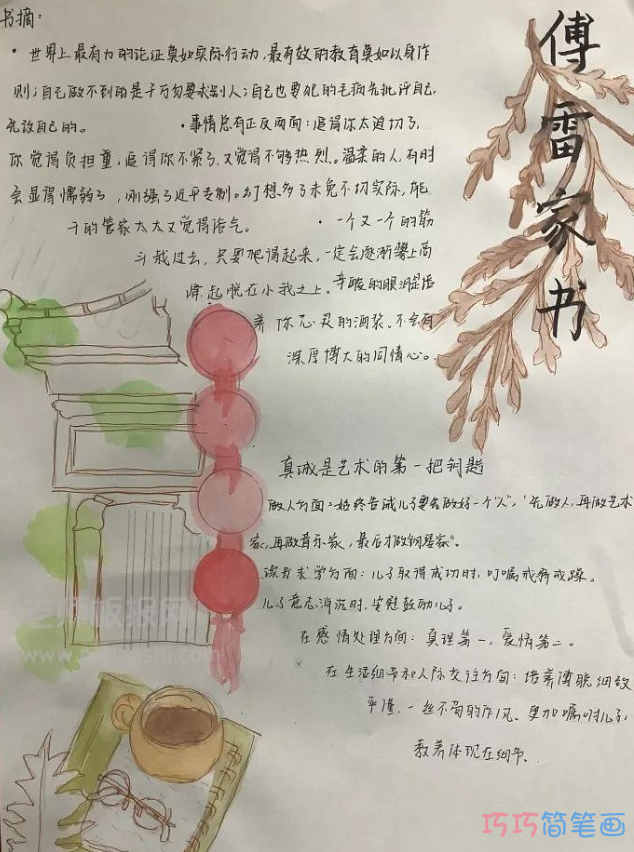 书摘:
傅雷家书
·世界上最有力的论证莫如实际行动,最有效的教育莫如以身作
则;自己做不到的是千万勿要求别人;自己也要犯的毛病先批评自己,
先改自己的。 ·事情总有正反两面:追得你太迫切了,
你觉得负担重,追得你不紧了,又觉得不够热烈。温柔的人,有时
会显得懦弱了,刚强了近乎专制。幻想多了未免不切实际,能
干的管家太太又觉得俗气。 ·一个又一个的筋
斗栽过去,只要爬得起来,一定会逐渐攀上高
峰,超脱在小我之上。辛酸的眼泪是培
养你心灵的酒浆。不会有
深厚博大的同情心。
真诚是艺术的第一把钥匙
做人方面:始终告诫儿子要会做好一个"人",“先做人,再做艺术
家,再做音乐家,最后才做钢琴家”。
读书求学方面:儿子取得成功时,叮嘱戒骄戒躁。
儿子意志消沉时,安慰鼓励儿子。
在感情处理方面:真理第一,爱情第二。
在生活细节和人际交往方面:培养博 细致
严谨,一丝不苟的作风、更加嘱咐儿子
教养体现在细节.
老师板报网
巧巧简笔画